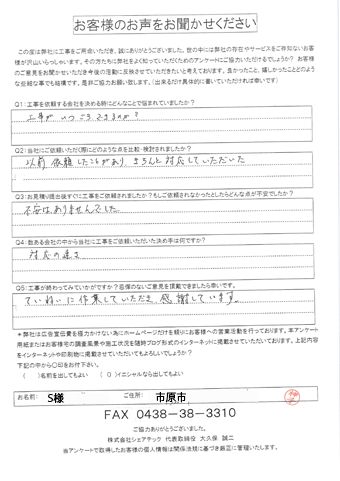 お客様のお声をお聞かせください
この度は弊社に工事をご用命いただき、誠にありがとうございました。世の中には弊社の存在やサービスをご存知ないお客
様が沢山いらっしゃいます。その方たちに弊社をよく知っていただくためのアンケートにご協力いただけるでしょうか? お客様
のご意見をお聞かせいただき今後の活動に反映させていただきたいと考えております。良かったこと、嬉しかったことどのよう
な些細な事でも結構です。是非ご協力お願い致します。(出来るだけ具体的に書いていただければ幸いです)
Q1:工事を依頼する会社を決める時にどんなことで悩まれていましたか?
工事が いつごろできるのか?
Q2:当社にご依頼いただく際にどのような点を比較・検討されましたか?
以前 依頼したことがあり きちんと対応していただいた
Q3:お見積り提出後すぐに工事をご依頼されましたか?もしご依頼されなかったとしたらどんな点が不安でしたか?
不安はありませんでした
Q4:数ある会社の中から当社に工事をご依頼いただいた決め手は何ですか?
対応の速さ
Q5:工事が終わってみていかがですか?忌憚のないご意見を頂戴できましたら幸いです。
ていねいに作業していただき、感謝しています。
＊弊社は広告宣伝費を極力かけない為にホームページだけを頼りにお客様への営業活動を行っております。本アンケート
用紙またはお客様宅の調査風景や施工状況を随時ブログ形式のインターネットに掲載させていただいております。上記内容
をインターネットや印刷物に掲載させていただいてもよろしいでしょうか?
下記の中から〇印をお付下さい。
( )名前を出してもよい ( O )イニシャルなら出してもよい
お名前: S様 ご住所: 市原市
FAX 0438-38-3310
ご協力ありがとうございました。
株式会社シェアテック 代表取締役 大久保 誠二
当アンケートで取得したお客様の個人情報は関係法規に基づき厳正に管理いたします。